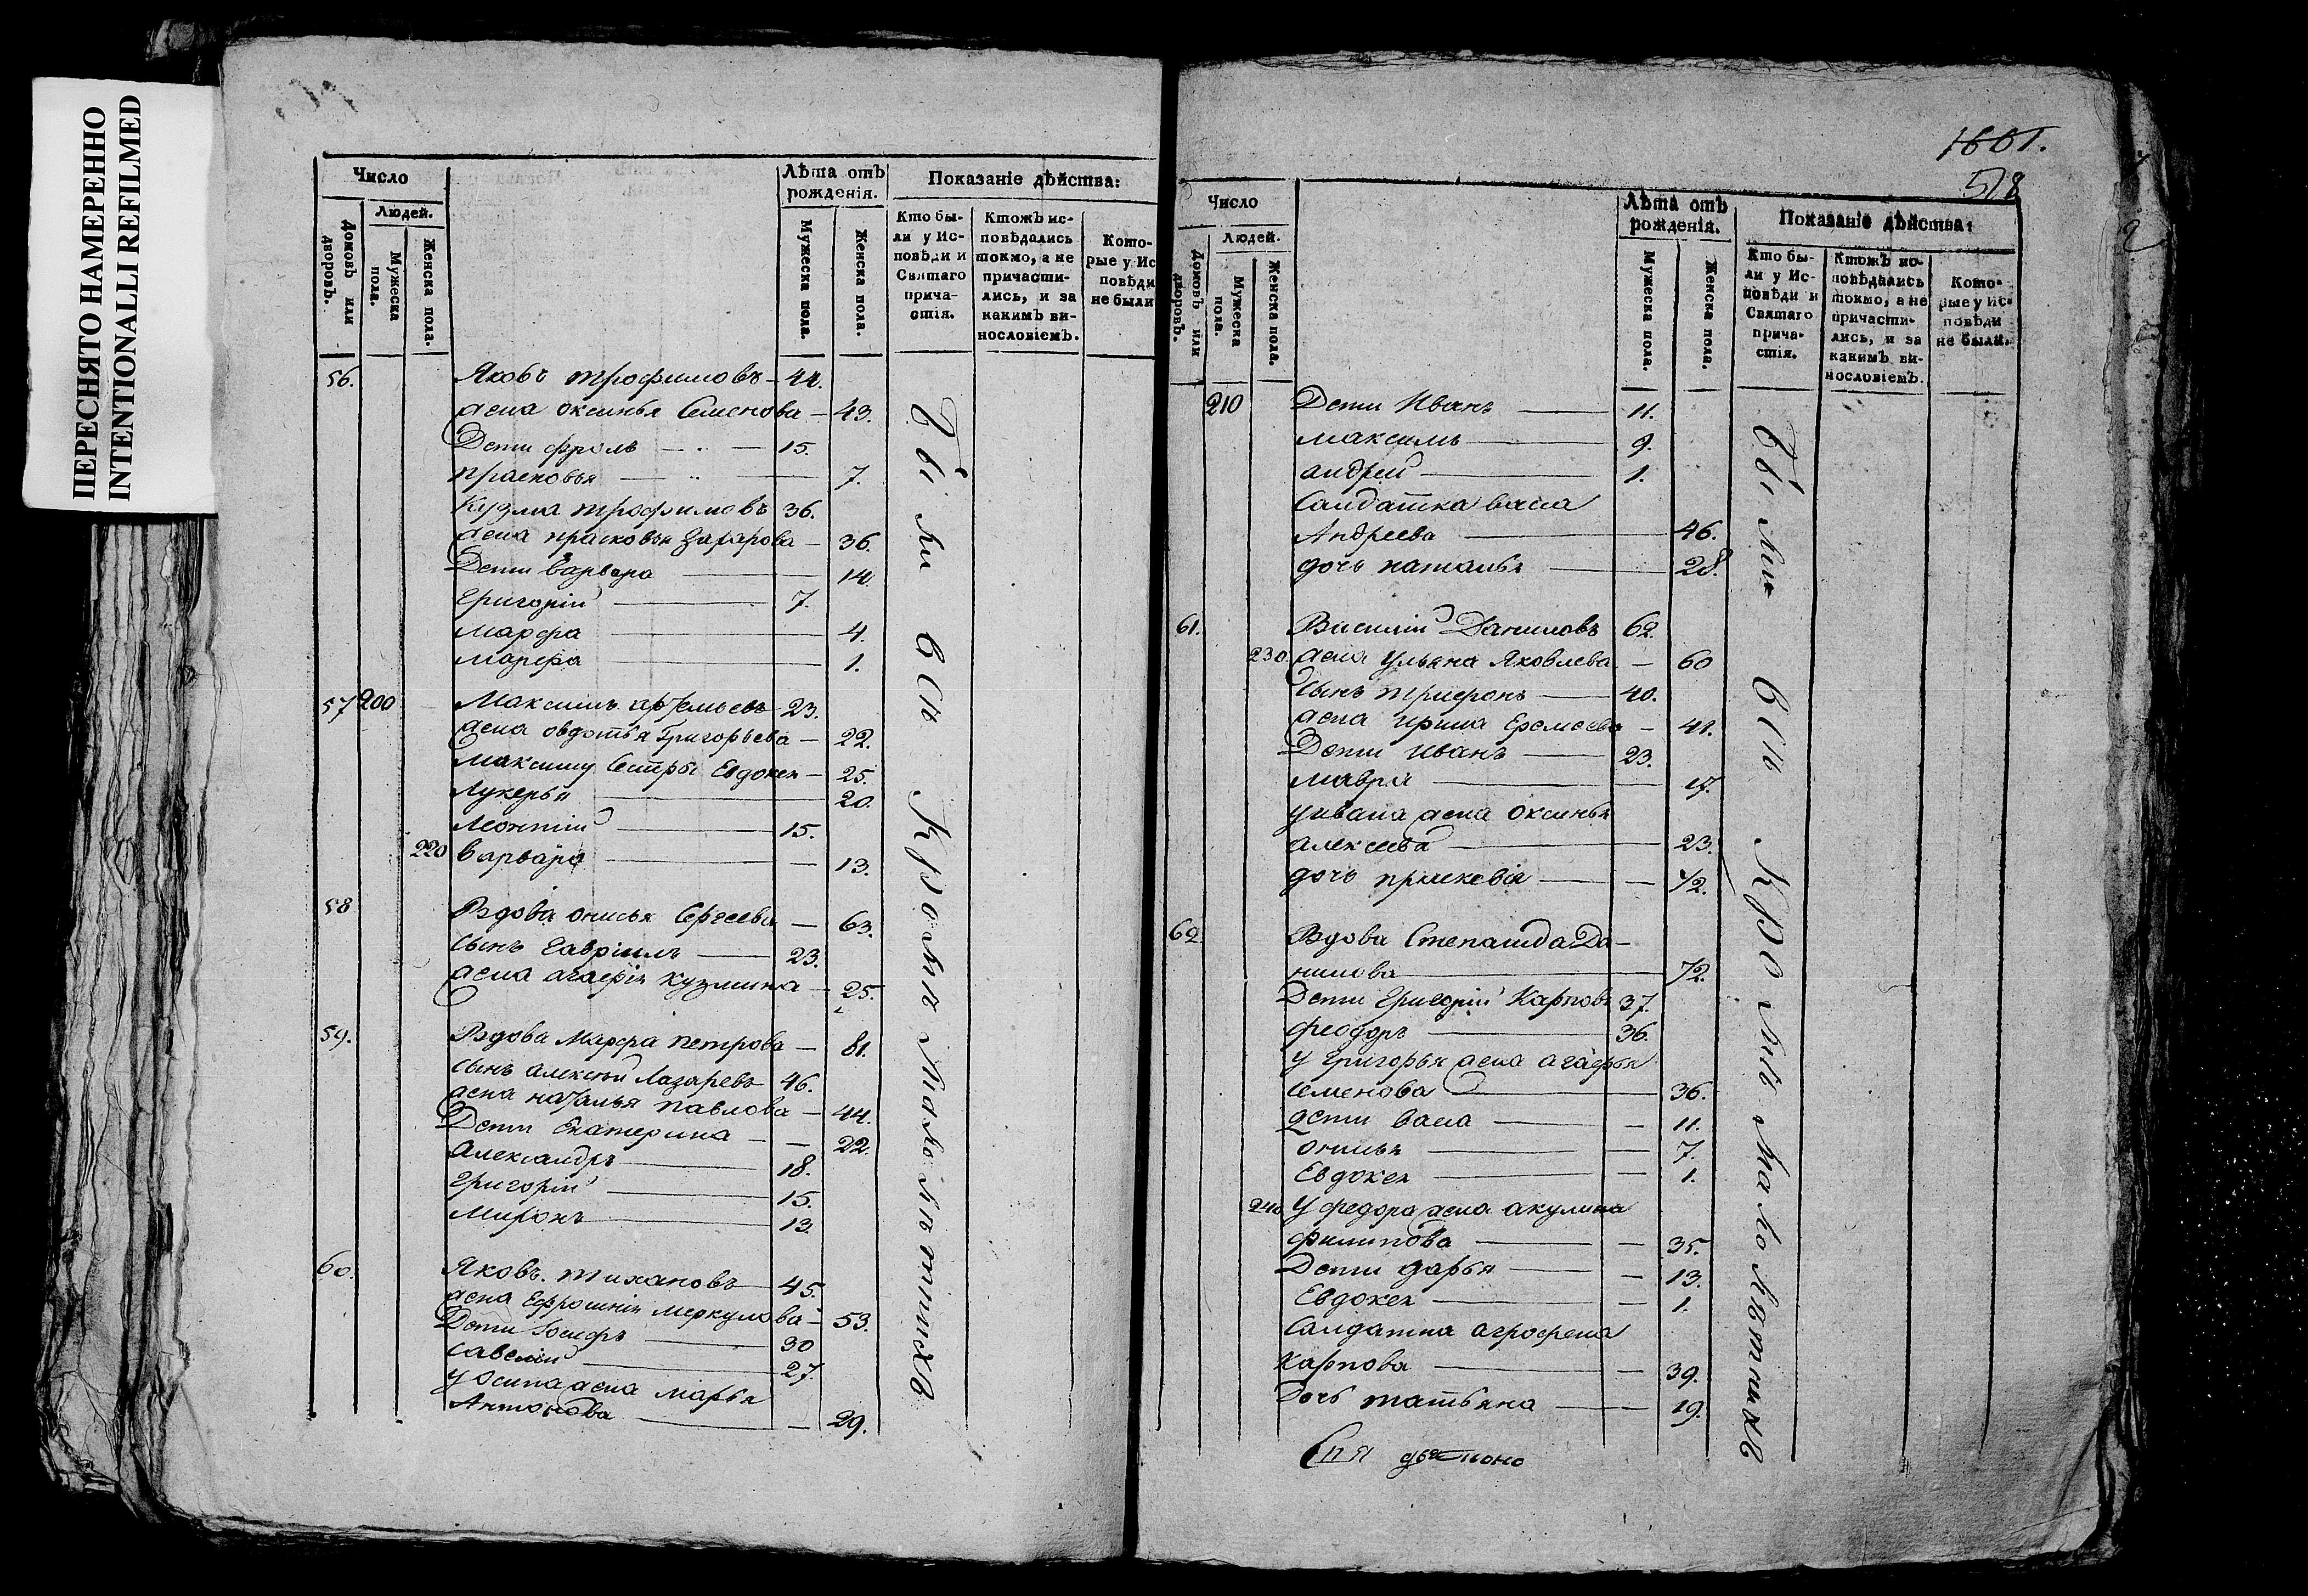 ПЕРЕСНЯТО НАМЕРЕННО
INTENTIONALLI REFILMED
Число
Людей.
Домовъ или дворовъ.
Мужеска пола.
Женска пола.
Лѣта отъ рожденія.
Мужеска пола.
Женска пола.
Показаніе дѣйства:
Кто были у Исповѣди и Святаго причастія.
Ктожъ исповѣдались токмо, а не причастились, и за какимъ винословіемъ.
Которые у Исповѣди не были
56. Яковъ трофимовъ 44.
жена оксинья Семенова 43.
Дети фролъ 15.
прасковья 7.
Кузма трофимовъ 36.
жена прасковья Захарова 36.
Дети варвара 14.
григорій 7.
марфа 4.
марфа 1.
57 200 Максимъ артемьевъ 23.
жена овдотья Григорьева 22.
Максиму Сестры Евдокея 25.
Лукерья 20.
леонтій 15.
220 варвара 13.
58 Вдова онисья Сергеева 63.
сынъ гавріилъ 23.
жена агафія кузмина 25.
59. Вдова марфа петрова 81.
сынъ алексѣй Лазаревъ 46.
жена наталья павлова 44.
Дети Екатерина 22.
александръ 18.
григорій 15.
миронъ 13.
60. Яковъ тихановъ 45.
жена Ефросинія меркулова 53.
Дети Іосифъ 30
савелій 27.
у осипа жена марья
Антонова 29.
были всѣ Кромѣ малолѣтнихъ
1661.
518
Число
Людей.
Домовъ или дворовъ.
Мужеска пола.
Женска пола.
Лѣта отъ рожденія.
Мужеска пола.
Женска пола.
Показаніе дѣйства:
Кто были у Исповѣди и Святаго причастія.
Ктожъ исповѣдались токмо, а не причастились, и за какимъ винословіемъ.
Которые у Исповѣди не были.
210 Дети Иванъ 11.
максимъ 9.
андрей 1.
Салдатка васса
Андреева 46.
дочь наталья 28.
61. Василій Даниловъ 62.
230. жена ульяна Яковлева 60
сынъ трифонъ 40.
жена ирина Еремеева 41.
Дети иванъ 23.
мавра 17.
у ивана жена оксинья
алексеева 23.
дочь прасковія
62. Вдова Степанида Да-
нилова 72.
Дети григорій Карповъ 37.
феодоръ 36.
у григорья жена агафья
семенова 36.
дети васса 11.
онисья 7.
Евдокея 1.
240 У федора жена акулина
филипова 35.
Дети дарья 13.
Евдокея 1.
Салдатка агрофена
карпова 39.
Дочь татьяна 19.
были всѣ Кромѣ малолѣтнихъ